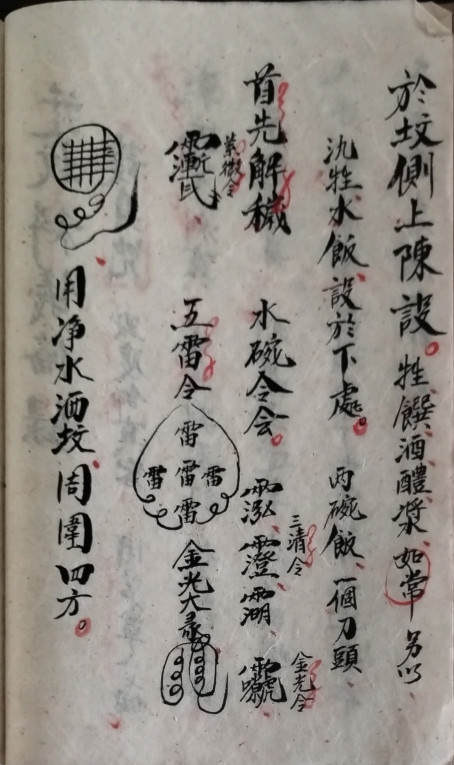 於坟側上陳設。牲饌酒醴漿如常另以
氿牲水飯設於下處。両碗飯一個刀頭
首先解穢 水碗令会。
三清令
金光令
紫微令
五雷令 雷 雷 雷 雷 雷 金光大
用净水洒坟周圍四方。